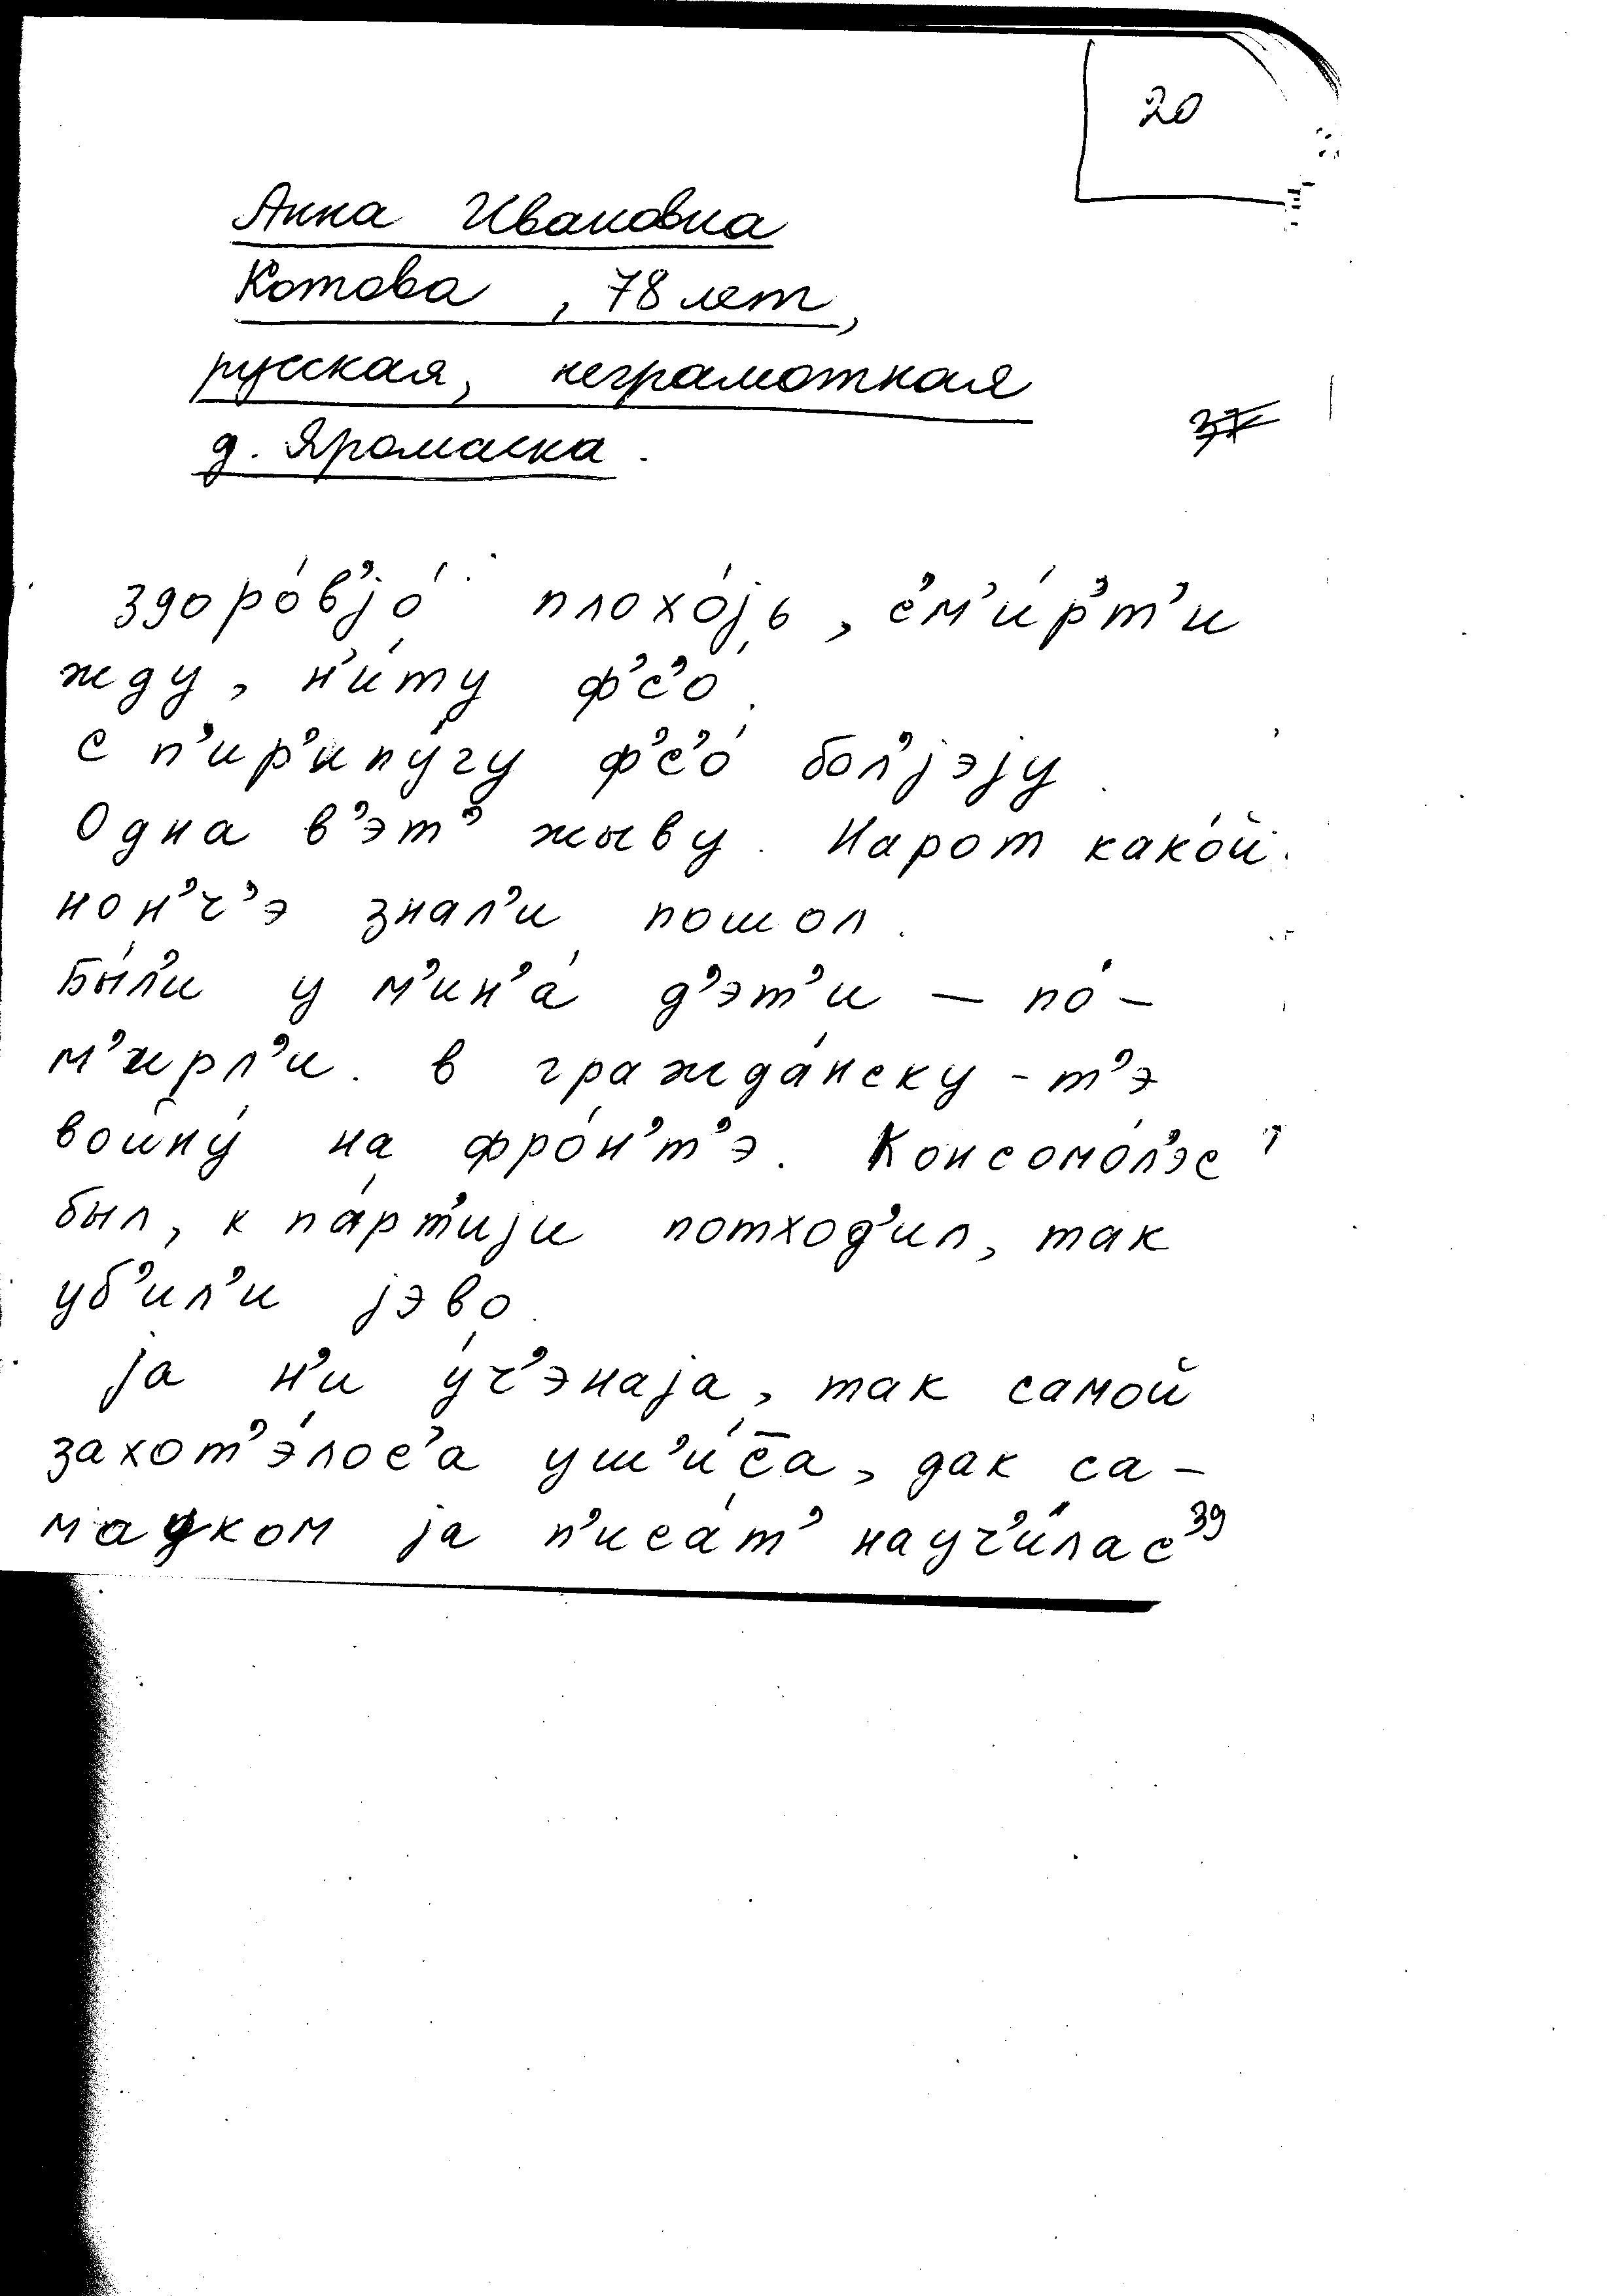 20
Анна Ивановна
Котова, 78 лет,
русская, неграмотная
д. Яромаска.
37
здоро́в’јо́ плохо́јь, с’м’и́р’т’и
жду, н’и́ту ф’с’о.
с п’ир’ипу́гу ф’с’о́ бол’јэју.
Одна в’эт’ жыву. Нарот како́й
нон’ч’э знал’и пошол.
Бы́л’и у м’ин’а́ д’эт’и – по́-
м’ирл’и. в гражда́нску-т’э
войну́ на фро́н’т’э. Консомо́л’эс
был, к па́рт’ији потход’ил, так
уб’ил’и јэво.
ја н’и у́ч’энаја, так самой
захот’э́лос’а уш’и́с̄а, дак са-
мауком ја п’иса́т’ науч’и́лас’
39